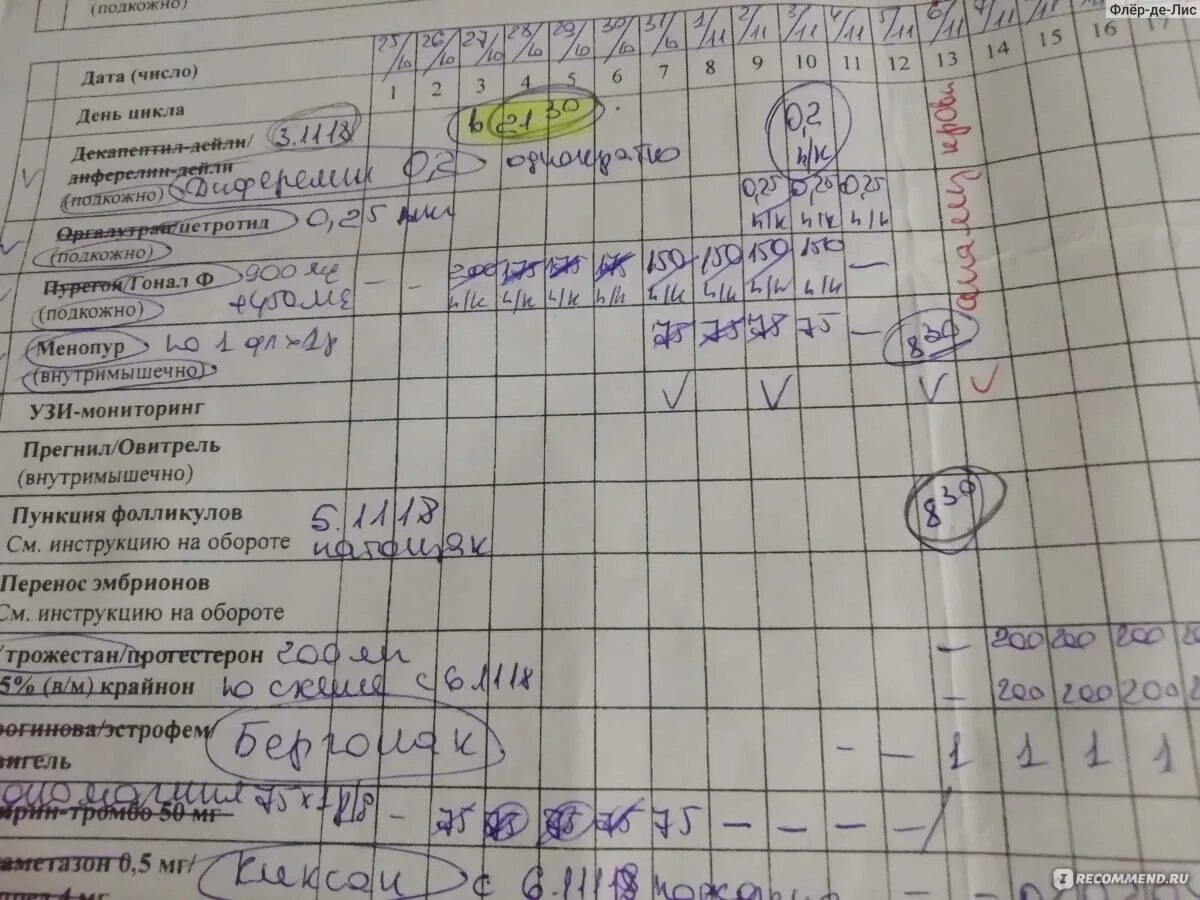 (подкожно)
Флёр-де-Лис
Дата (число) 25/10 26/10 27/10 28/10 29/10 30/10 31/10 1/11 2/11 3/11 4/11 5/11 6/11 7/11
День цикла 1 2 3 4 5 6 7 8 9 10 11 12 13 14 15 16 17
Декапептил-дейли/ 3.11.18 в 21 30 0,2
диферелин-дейли п/к
(подкожно) Диферелин 0,2 однократно
Оргалутран/цетротид 0,25 0,25 0,25 0,25
(подкожно) п/к п/к п/к
Пурегон/Гонал Ф 900 - - 200 175 175 175 150 150 150 150 -
(подкожно) +450 МЕ п/к п/к п/к п/к п/к п/к п/к п/к
Менопур по 1 фл 75 75 75 75 - 8 30
(внутримышечно)
УЗИ-мониторинг
Прегнил/Овитрель
(внутримышечно)
Пункция фолликулов 5.11.18 8 30
См. инструкцию на обороте натощак
Перенос эмбрионов
См. инструкцию на обороте
трожестан/прогестерон - 200 200 200
5% (в/м) крайнон по схеме с 6.11.18 - 200 200 200
рогинова/эстрофем/ Берголак - - 1 1 1 1
вигель
75 - 75 75 75 75 75 - - - -
ирин-тромбо 50 мг
аметазон 0,5 мг/ Клексан с 6.11.18 подкожно
4 мг
IRECOMMEND.RU